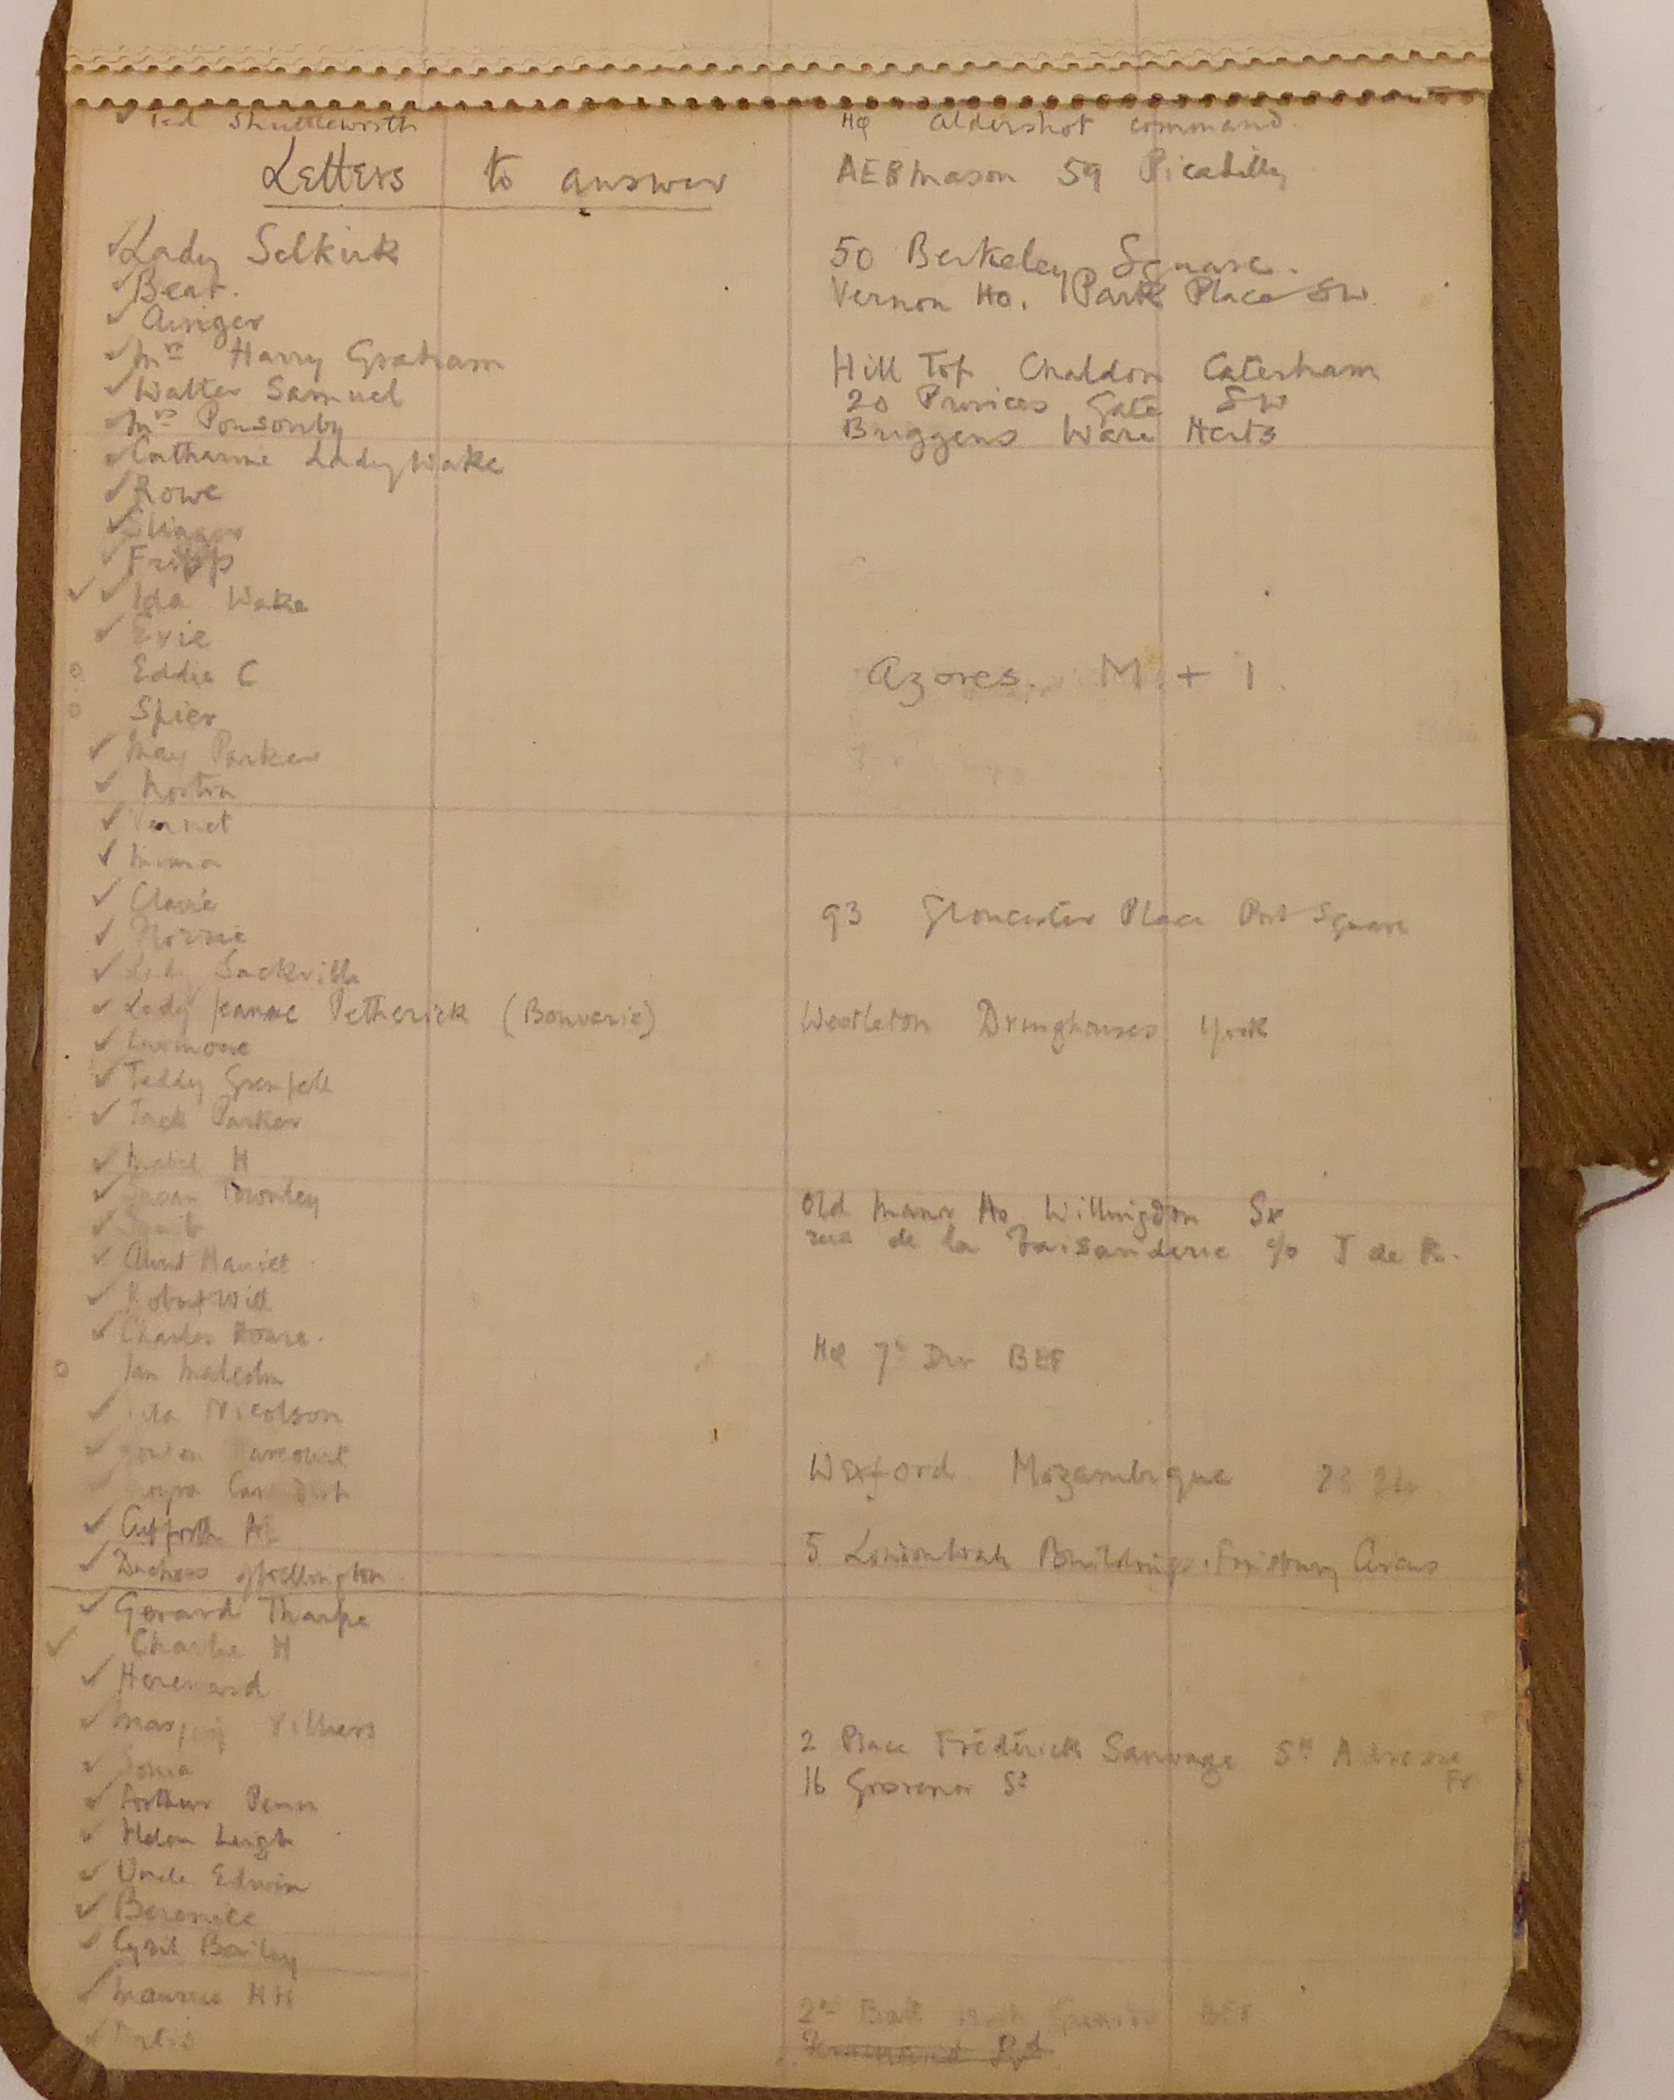 Ted Shuttleworth HQ Aldershot command.
Letters to answer AEWMason 59 Picadilly
Lady Selkirk 50 Berkeley Square.
Beat. Vernon Ho. Park Place SW
Ainger
Mrs Harry Graham Hill Top Chaldon Caterham
Walter Samuel 20 Princes Gate SW
Mrs Ponsonby Briggens Ware Herts
Catharine Lady Wake
Rowe
Fripp
Ida Wake
Evie
Eddie C Azores. M + I.
Spier
May Parker
Morton
Vernet
Clavie 93 Gloucester Place Port Square
Norrie
Lady Sackville
Lady Jeanne Petherick (Bouverie) Westleton Dringhouses York
Teddy Grenfell
Jack Parker
Mabel H
Susan Townley Old Manor Ho Willingdon Sx
rue de la Faisanderie c/o J de R.
Aunt Harriet
Robert Will
Charles Hoare.
Ian Malcolm HQ 7th Div BEF
Nicolson
Harcourt Wexford. Mozambique
Cavendish
Cutforth AE 5 London Wall Buildings Finsbury Circus
Duchess of Wellington
Gerard Tharpe
Charlie H
Hereward
Villiers 2 Place Frédérick Sauvage Ste Adresse
Sonia 16 Grosvenor St Fr
Arthur Penn
Helen Leigh
Uncle Edwin
Berenice
Cyril Bailey
Maurice HH
2nd Batt Irish Guards BEF